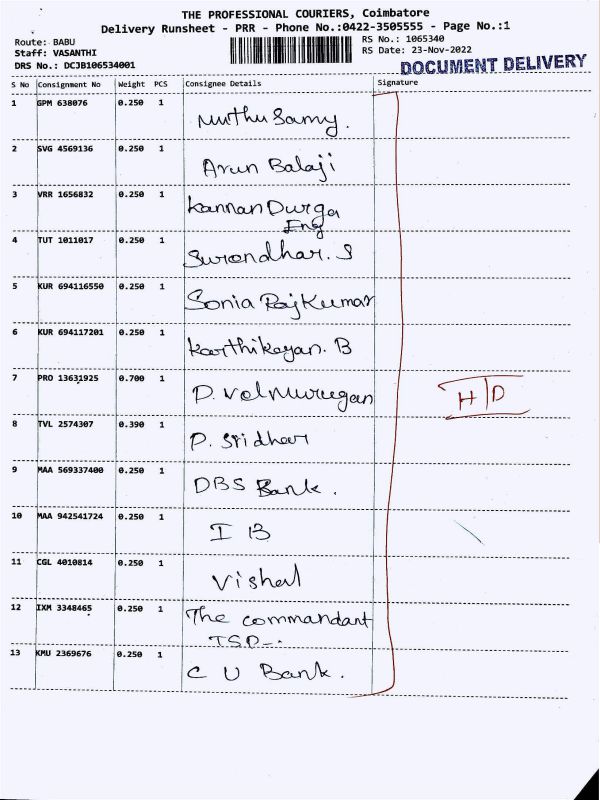 THE PROFESSIONAL COURIERS, Coimbatore
Delivery Runsheet - PRR - Phone No.:0422-3505555 - Page No.:1
Route: BABU
Staff: VASANTHI
DRS No.: DCJB106534001
RS No.: 1065340
RS Date: 23-Nov-2022
DOCUMENT DELIVERY
S No Consignment No Weight PCS Consignee Details Signature
1 GPM 638076 0.250 1 Muthu Samy.
2 SVG 4569136 0.250 1 Arun Balaji
3 VRR 1656832 0.250 1 Kannan Durga
Eng
4 TUT 1011017 0.250 1 Surendhar. S
5 KUR 694116550 0.250 1 Sonia RajKumar
6 KUR 694117201 0.250 1 Karthikeyan. B
7 PRO 13631925 0.700 1 D. Velmurugan
H/D
8 TVL 2574307 0.390 1 P. Sridhar
9 MAA 569337400 0.250 1 DBS Bank.
10 MAA 942541724 0.250 1 I B
11 CGL 4010814 0.250 1 Vishal
12 IXM 3348465 0.250 1 The commandant
TSP-.
13 KMU 2369676 0.250 1 C U Bank.